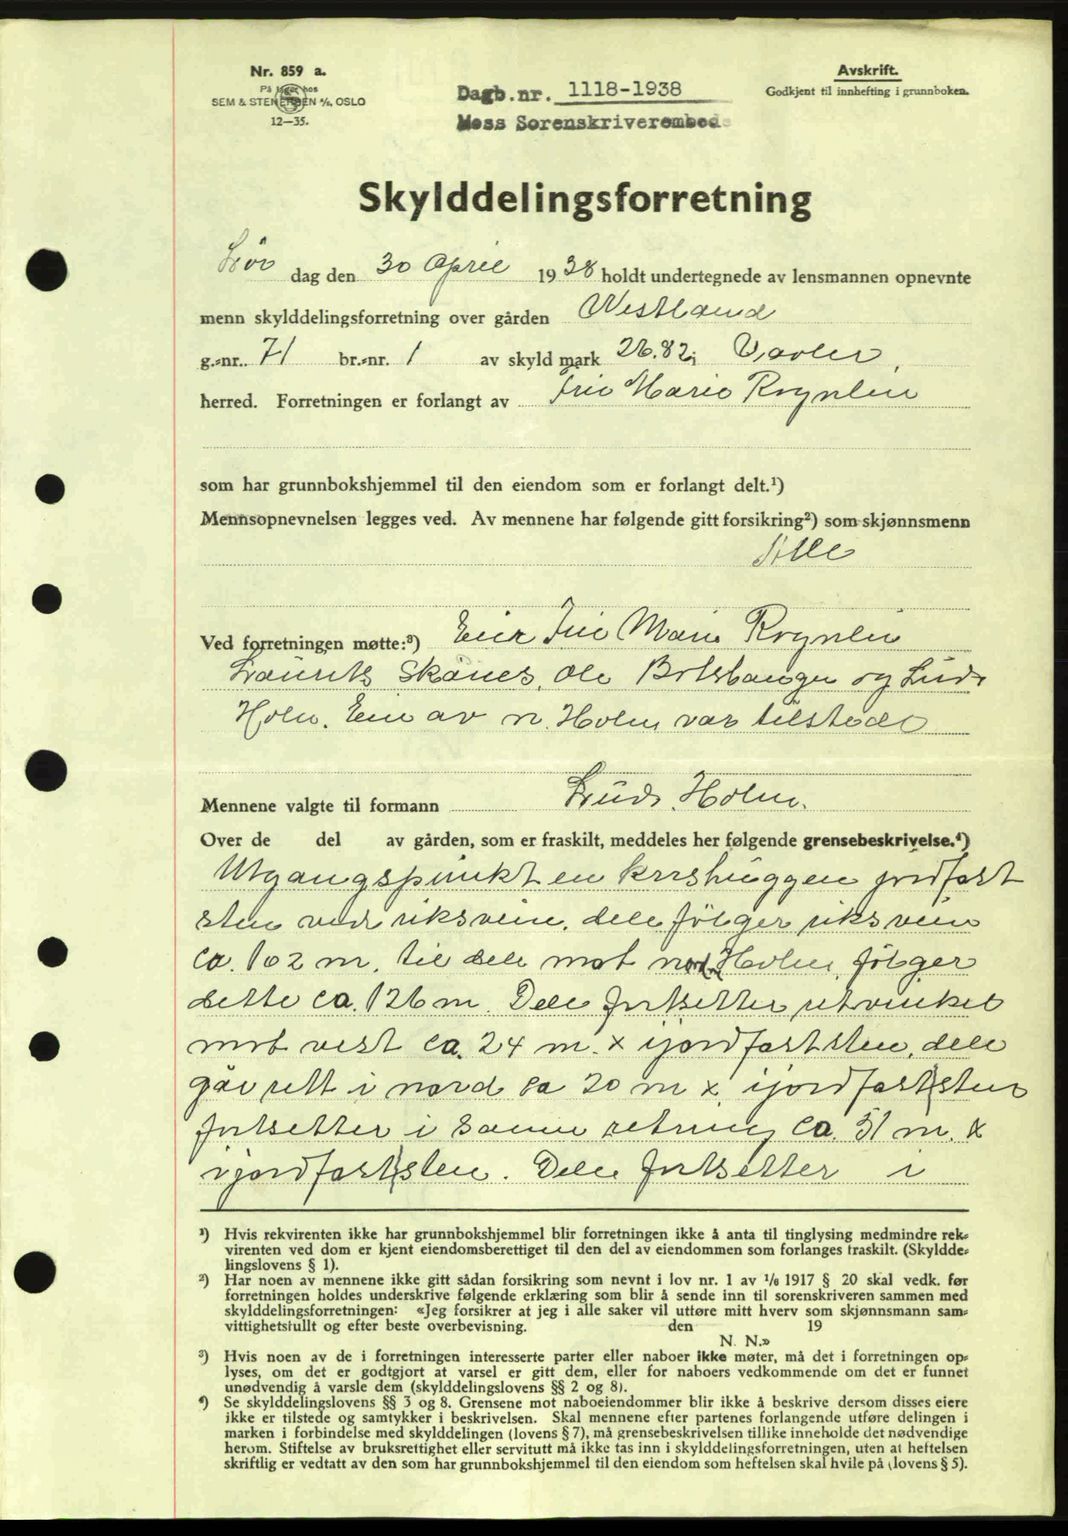 Nr. 859 a.
På lager hos
SEM & STENERSEN A/S, OSLO
12—35.
Dagb.nr. 1118-1938
Moss Sorenskriverembede
Avskrift.
Godkjent til innhefting i grunnboken.
Skylddelingsforretning
Lör dag den 30 April 1938 holdt undertegnede av lensmannen opnevnte
menn skylddelingsforretning over gården Westland
g.-nr. 71 br.-nr. 1 av skyld mark 26.82 i Vaaler
herred. Forretningen er forlangt av Frie Marie Rognlin
som har grunnbokshjemmel til den eiendom som er forlangt delt.¹)
Mennsopnevnelsen legges ved. Av mennene har følgende gitt forsikring²) som skjønnsmenn
Alle
Ved forretningen møtte:³) Eier Frie Marie Rognlin
Laurits Skånes, Ole Botsbaugen og Ludv
Holm. Eier av n. Holm var tilstede
Mennene valgte til formann Ludv. Holm.
Over de del av gården, som er fraskilt, meddeles her følgende grensebeskrivelse.⁴)
Utgangspunkt en krrshuggen jordfast
sten ved riksvein, dele følger riksvein
ca. 102 m. til dele mot nordre Holm, følger
dette ca. 126 m. Dele fortsetter retvinklet
mot vest ca. 24 m. x i jordfast sten, dele
går rett i nord ca 20 m x i jordfast sten
fortsetter i samme retning ca. 51 m. x
i jordfast sten. Dele fortsetter i
¹) Hvis rekvirenten ikke har grunnbokshjemmel blir forretningen ikke å anta til tinglysing medmindre rek-
virenten ved dom er kjent eiendomsberettiget til den del av eiendommen som forlanges fraskilt. (Skyldde-
lingslovens § 1).
²) Har noen av mennene ikke gitt sådan forsikring som nevnt i lov nr. 1 av ¹/₆ 1917 § 20 skal vedk. før
forretningen holdes underskrive følgende erklæring som blir å sende inn til sorenskriveren sammen med
skylddelingsforretningen: «Jeg forsikrer at jeg i alle saker vil utføre mitt hverv som skjønnsmann sam-
vittighetsfullt og efter beste overbevisning. den 19
N. N.»
³) Hvis noen av de i forretningen interesserte parter eller naboer ikke møter, må det i forretningen op-
lyses, om det er godtgjort at varsel er gitt dem, eller for naboers vedkommende om det er funnet
unødvendig å varsle dem (skylddelingslovens §§ 2 og 8).
⁴) Se skylddelingslovens §§ 3 og 8. Grensene mot naboeiendommer blir ikke å beskrive dersom disses eiere
ikke er tilstede og samtykker i beskrivelsen. Skal mennene efter partenes forlangende utføre delingen i
marken i forbindelse med skylddelingen (lovens § 7), må grensebeskrivelsen tillike inneholde det nødvendige
herom. Stiftelse av bruksrettighet eller servitutt må ikke tas inn i skylddelingsforretningen, uten at heftelsen
skriftlig er vedtatt av den som har grunnbokshjemmel til den eiendom som heftelsen skal hvile på (lovens § 5).